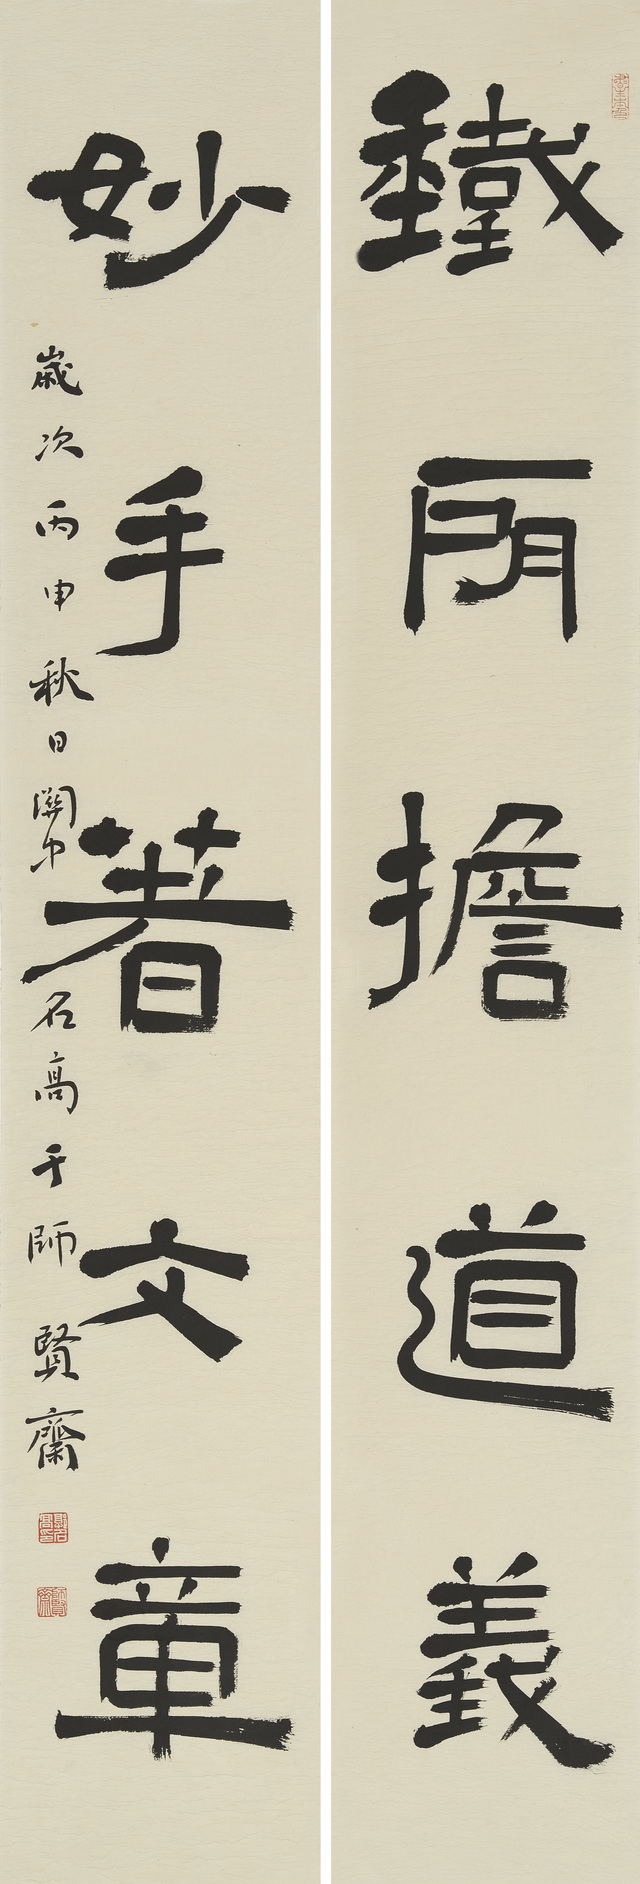 鐵肩擔道義
妙手著文章
歲次丙申秋日關中名高于師賢齋